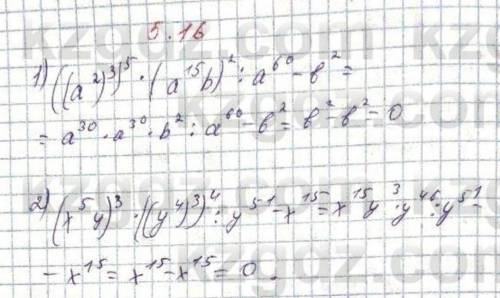 5.16
1) ((a²)³)⁵ · (a¹⁵b)² : a⁶⁰ - b² =
= a³⁰ · a³⁰ · b² : a⁶⁰ - b² = b² - b² = 0
2) (x⁵y)³ · ((y⁴)³)⁴ : y⁵¹ - x¹⁵ = x¹⁵y³ · y⁴⁸ : y⁵¹ -
- x¹⁵ = x¹⁵ - x¹⁵ = 0.